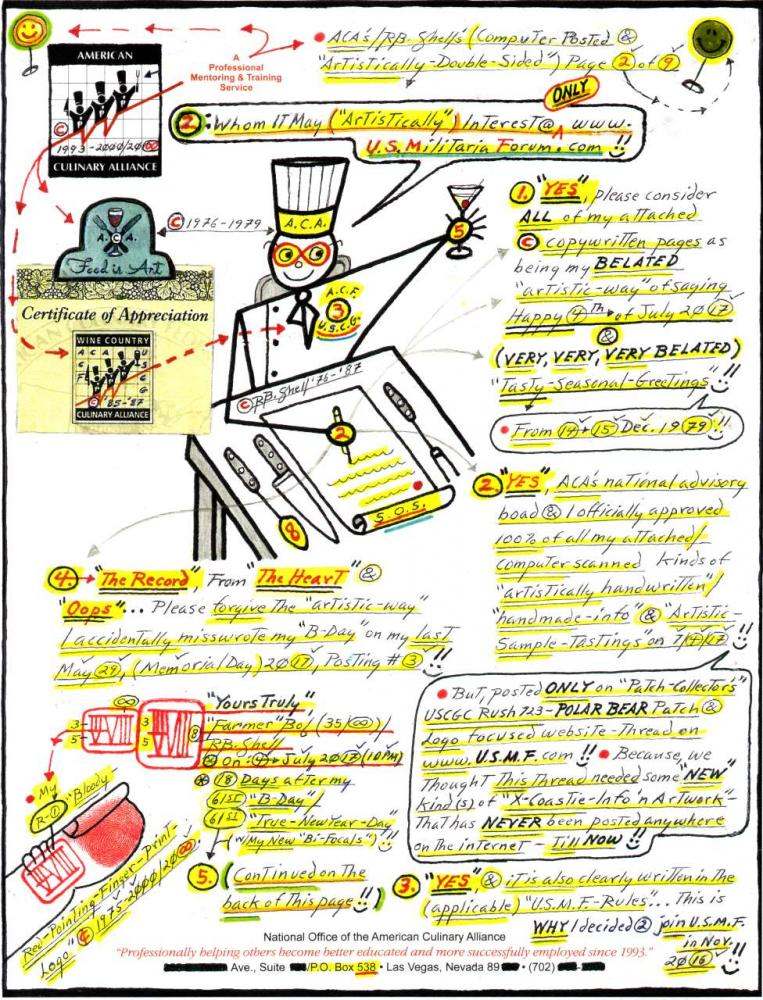 • ACA's/RB. Shell's (Computer Posted &
"Artistically-Double-Sided") Page 2 of 9
A
Professional
Mentoring & Training
Service
AMERICAN
© 1993-2000/20∞
CULINARY ALLIANCE
ONLY
2: Whom IT May ("Artistically") Interest@ ^ www.
U.S. Militaria Forum.com !!
A.C.A.
© 1976-1979
A.C.A.
Food is Art
Certificate of Appreciation
WINE COUNTRY
A C A U
'85-'87
CULINARY ALLIANCE
5
A.C.F.
3
U.S.C.G.
© RB. Shell '76-'87
2
S.O.S.
8
1. "YES", please consider
ALL of my attached
© copywritten pages as
being my BELATED
"artistic-way" of saying
Happy 4th of July 2017
&
(VERY, VERY, VERY BELATED)
"Tasty-Seasonal-Greetings" !!
• From 14+15 Dec. 1979 !!
2. "YES", ACA's national advisory
boad & I officially approved
100% of all my attached/
computer scanned kinds of
"artistically handwritten"/
"handmade-info" & "Artistic-
Sample-Tastings" on 7/4/17 !!
• But, posted ONLY on "Patch-Collectors"
USCGC Rush 723-POLAR BEAR Patch &
Logo focused website-Thread on
www.U.S.M.F.com !! • Because, we
Thought This Thread needed some "NEW"
Kind(s) of "X-Coastie-Info'n Artwork"-
That has NEVER been posted anywhere
on the internet - Till Now !!
4. → "The Record", From "The Heart" &
"Oops"... Please forgive The "artistic-way"
I accidentally misswrote my "B-Day" on my last
May 29, (Memorial Day) 2017, Posting #3 !!
"Yours Truly"
"Farmer" Bob (35/∞)
RB. Shell
On: 4 July 2017 (10PM)
18 Days after my
61st "B-Day"/
61st "True-New Year-Day"
(w/My New "Bi-Focals") !!
∞
3-
5-
3
5
8
• My
R-①
"Bloody
Red-Pointing-Finger-Print-
Logo" © 1975-2000/20∞
5. (Continued on The
back of This page !!)
3. "YES", & it is also clearly written in The
(applicable) "U.S.M.F.-Rules"... This is
WHY I decided 2 join U.S.M.F.
in Nov.
2016 !!
National Office of the American Culinary Alliance
"Professionally helping others become better educated and more successfully employed since 1993."
Ave., Suite /P.O. Box 538 • Las Vegas, Nevada 89 • (702)